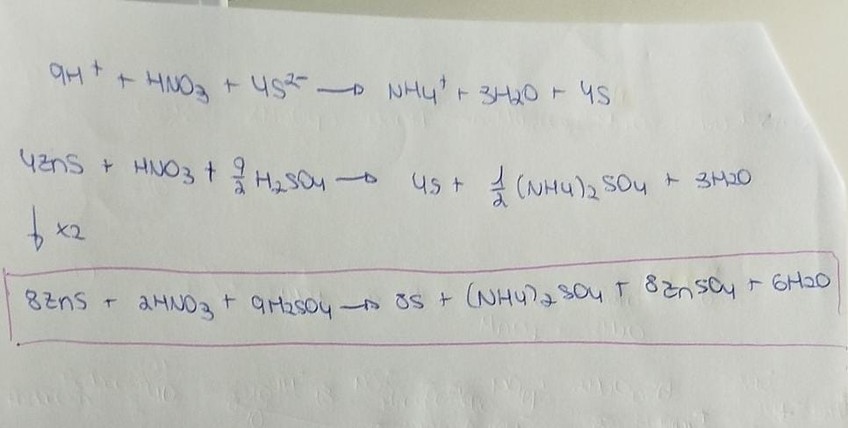 9H⁺ + HNO₃ + 4S²⁻ → NH4⁺ + 3H2O + 4S
4ZnS + HNO₃ + 9/2 H₂SO₄ → 4S + 1/2 (NH4)₂SO₄ + 3H2O
↓ x2
8ZnS + 2HNO₃ + 9H2SO4 → 8S + (NH4)₂SO4 + 8ZnSO4 + 6H2O